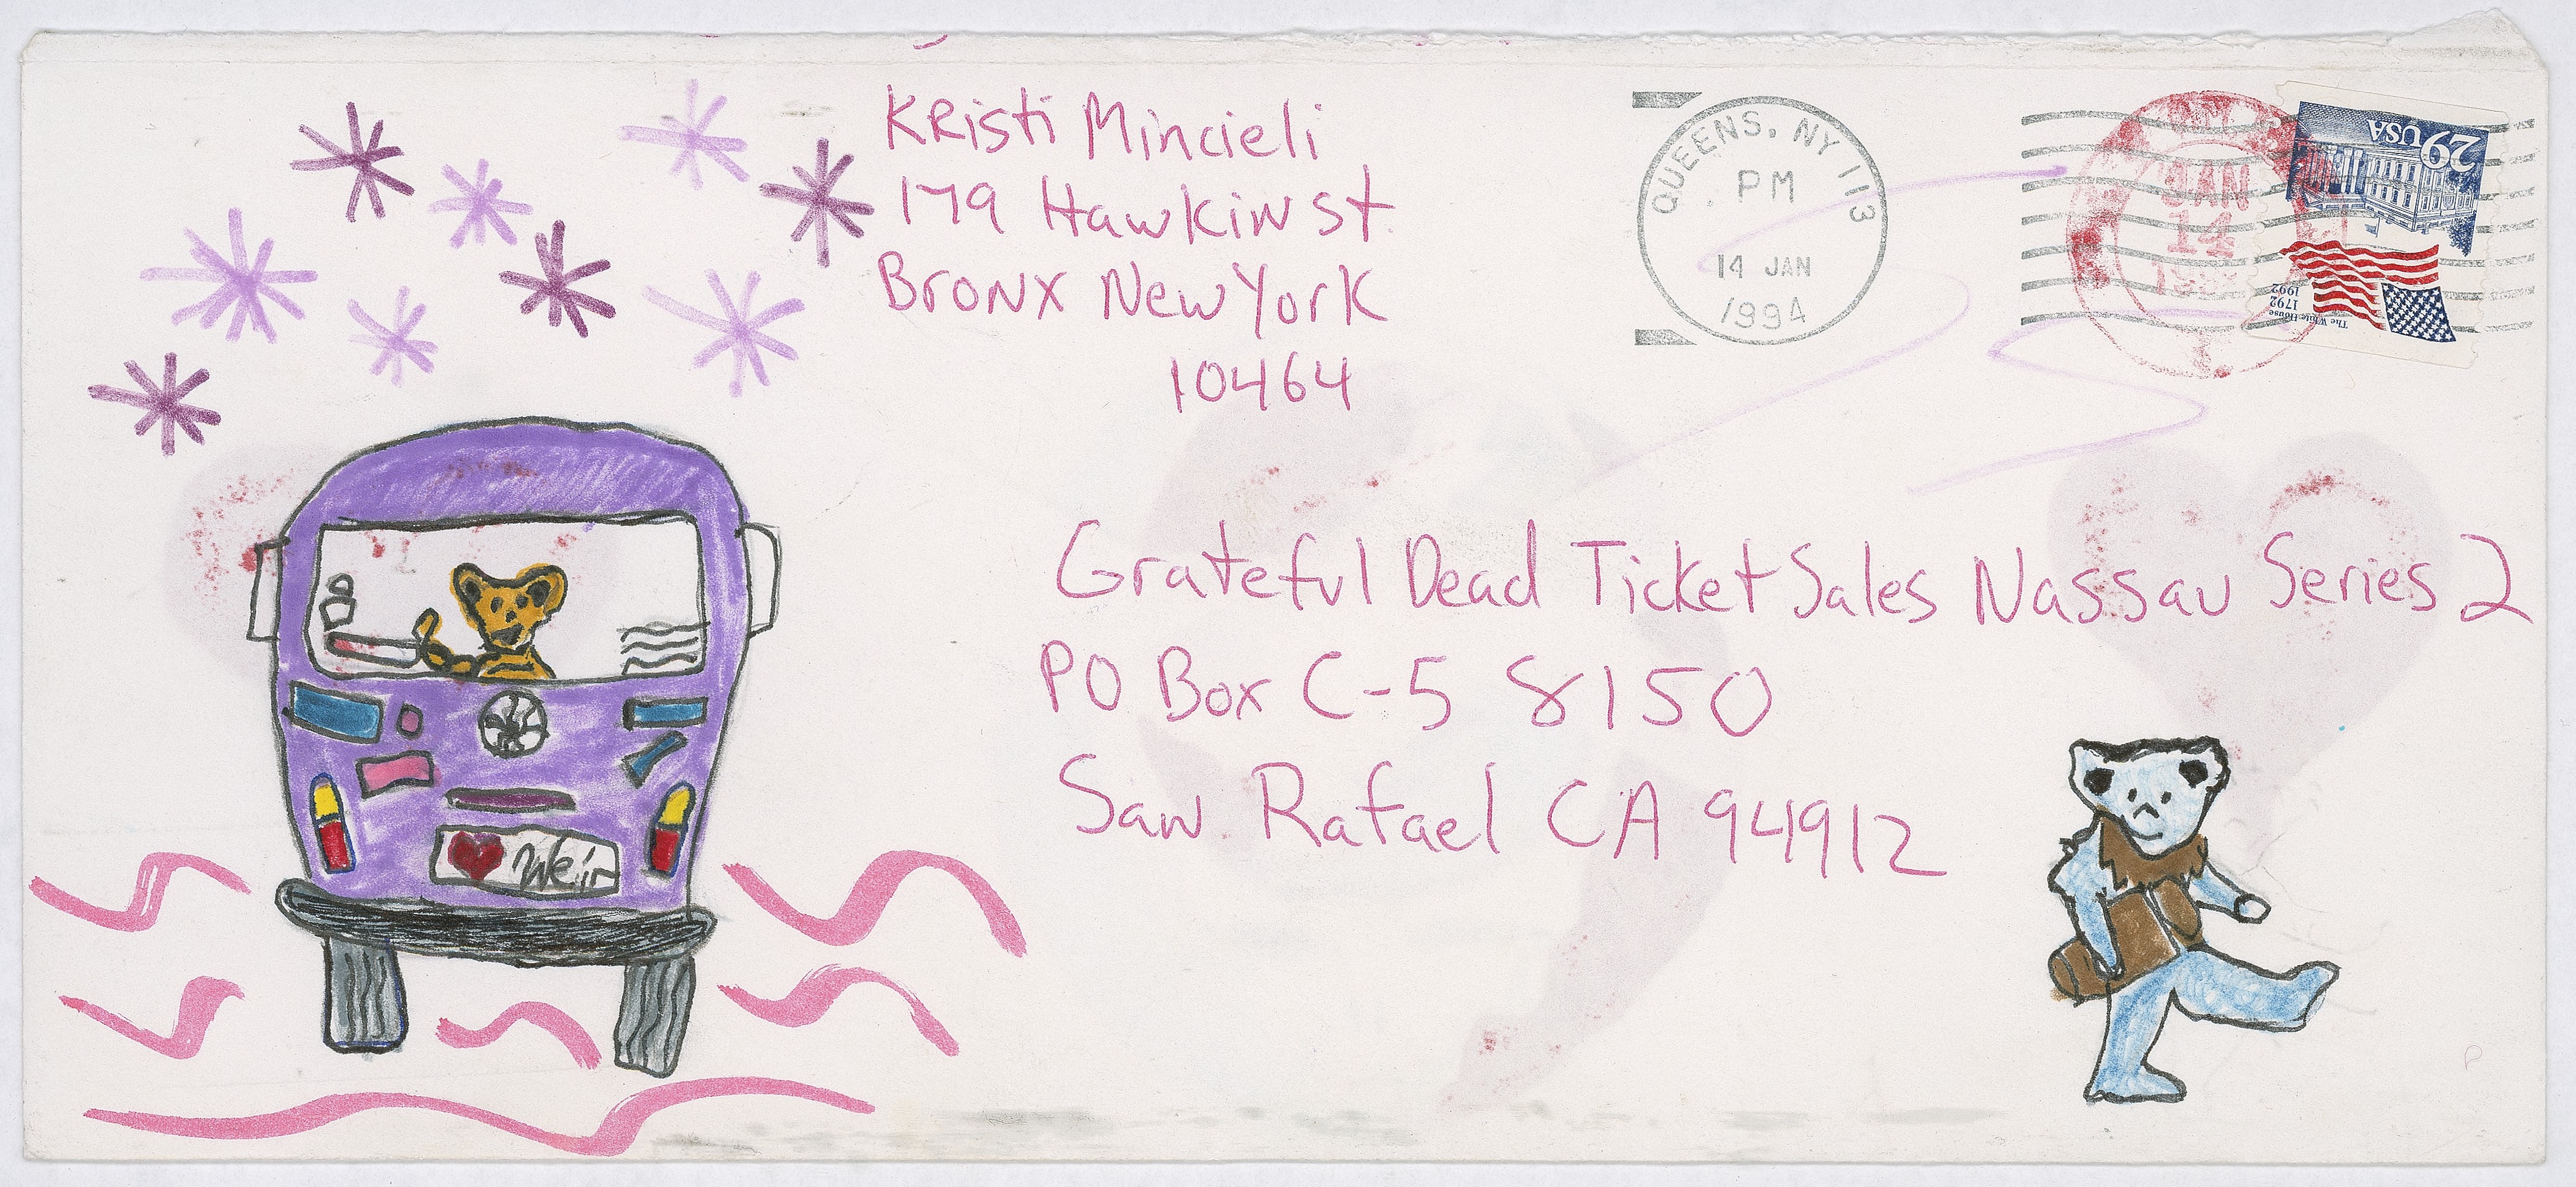 KRisti Mincieli
179 Hawkin St
Bronx New York
10464
QUEENS, NY 113
PM
14 JAN
1994
JAN
14
29 USA
The White House
1792
1992
Grateful Dead Ticket Sales Nassau Series 2
PO Box C-5 8150
San Rafael CA 94912
Weir